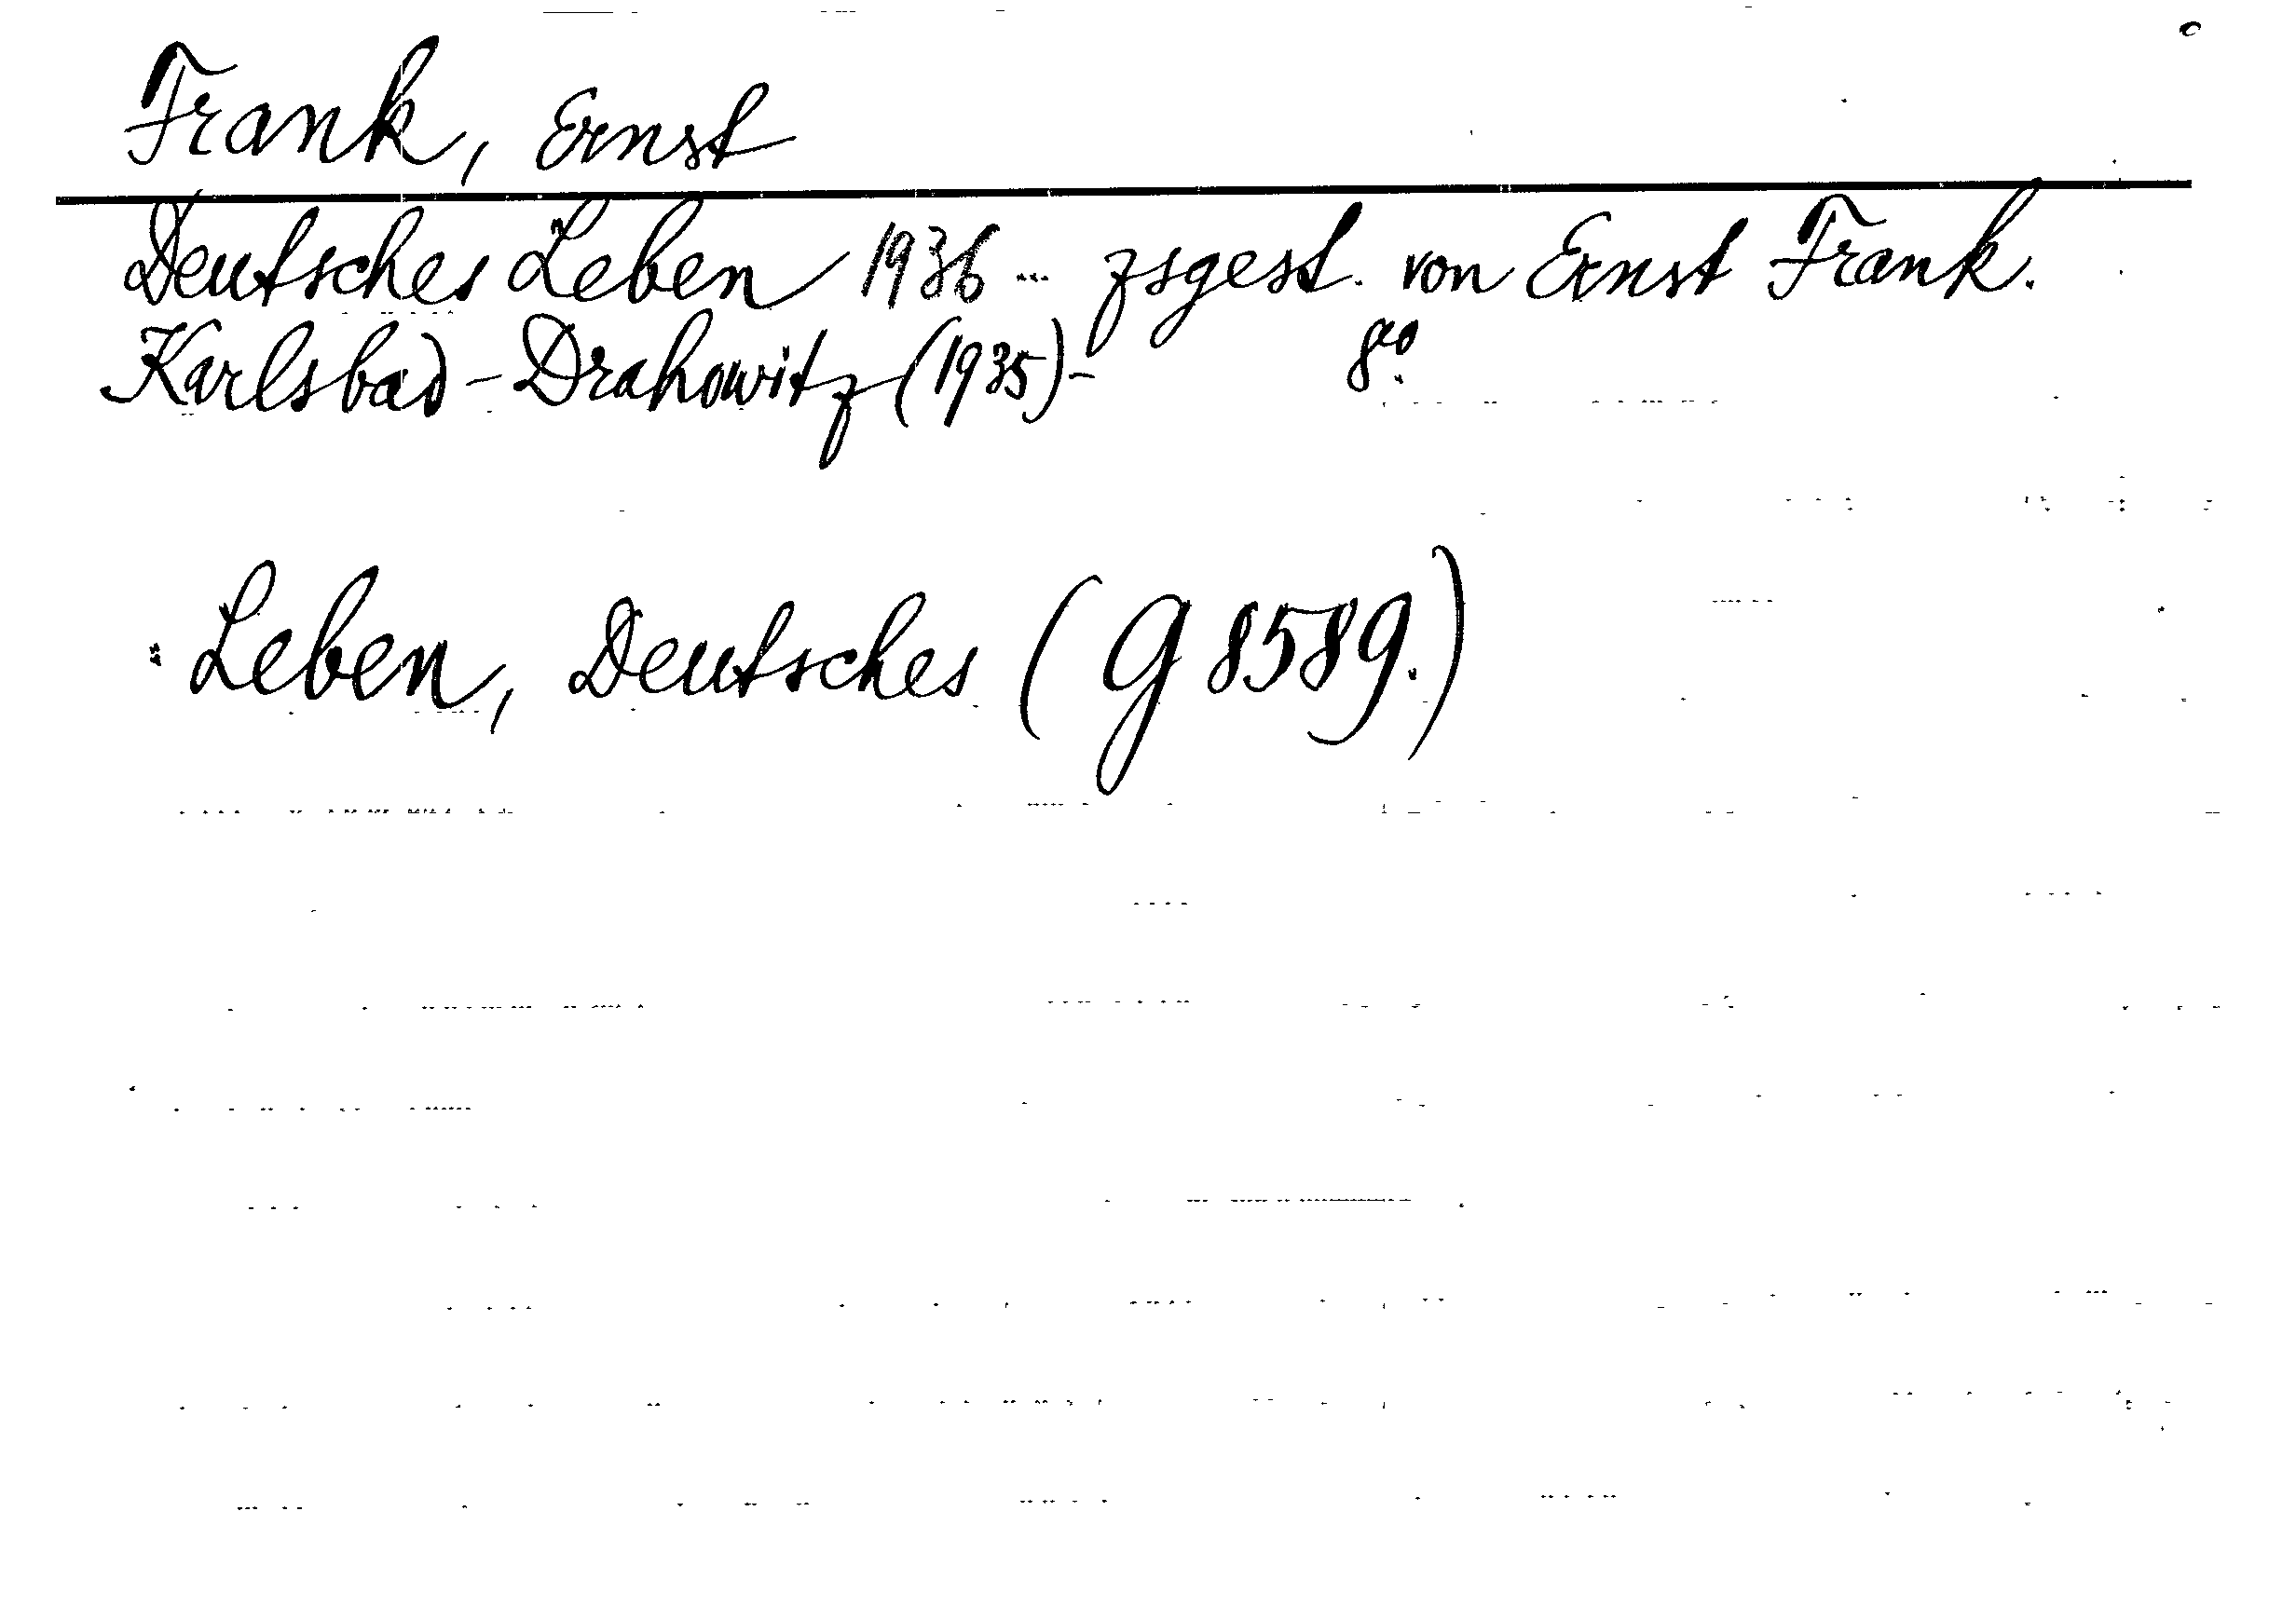 Frank, Ernst
Deutsches Leben 1936 ... zsgest. von Ernst Frank.
Karlsbad-Drahowitz (1935)- 8°.
Leben, Deutsches (G 8589.)